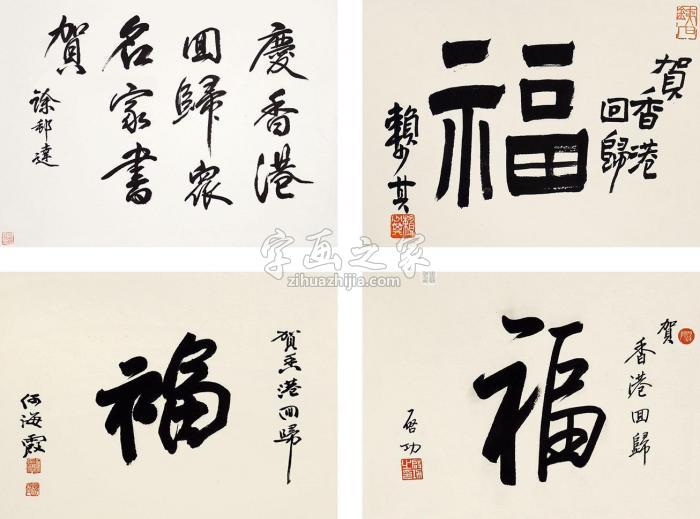 慶香港
回歸衆
名家書
賀
徐邦達
賀
香港
回歸
福
賴少其
字画之家
zihuazhijia.com
賀香港回歸
福
何海霞
賀
香港回歸
福
启功